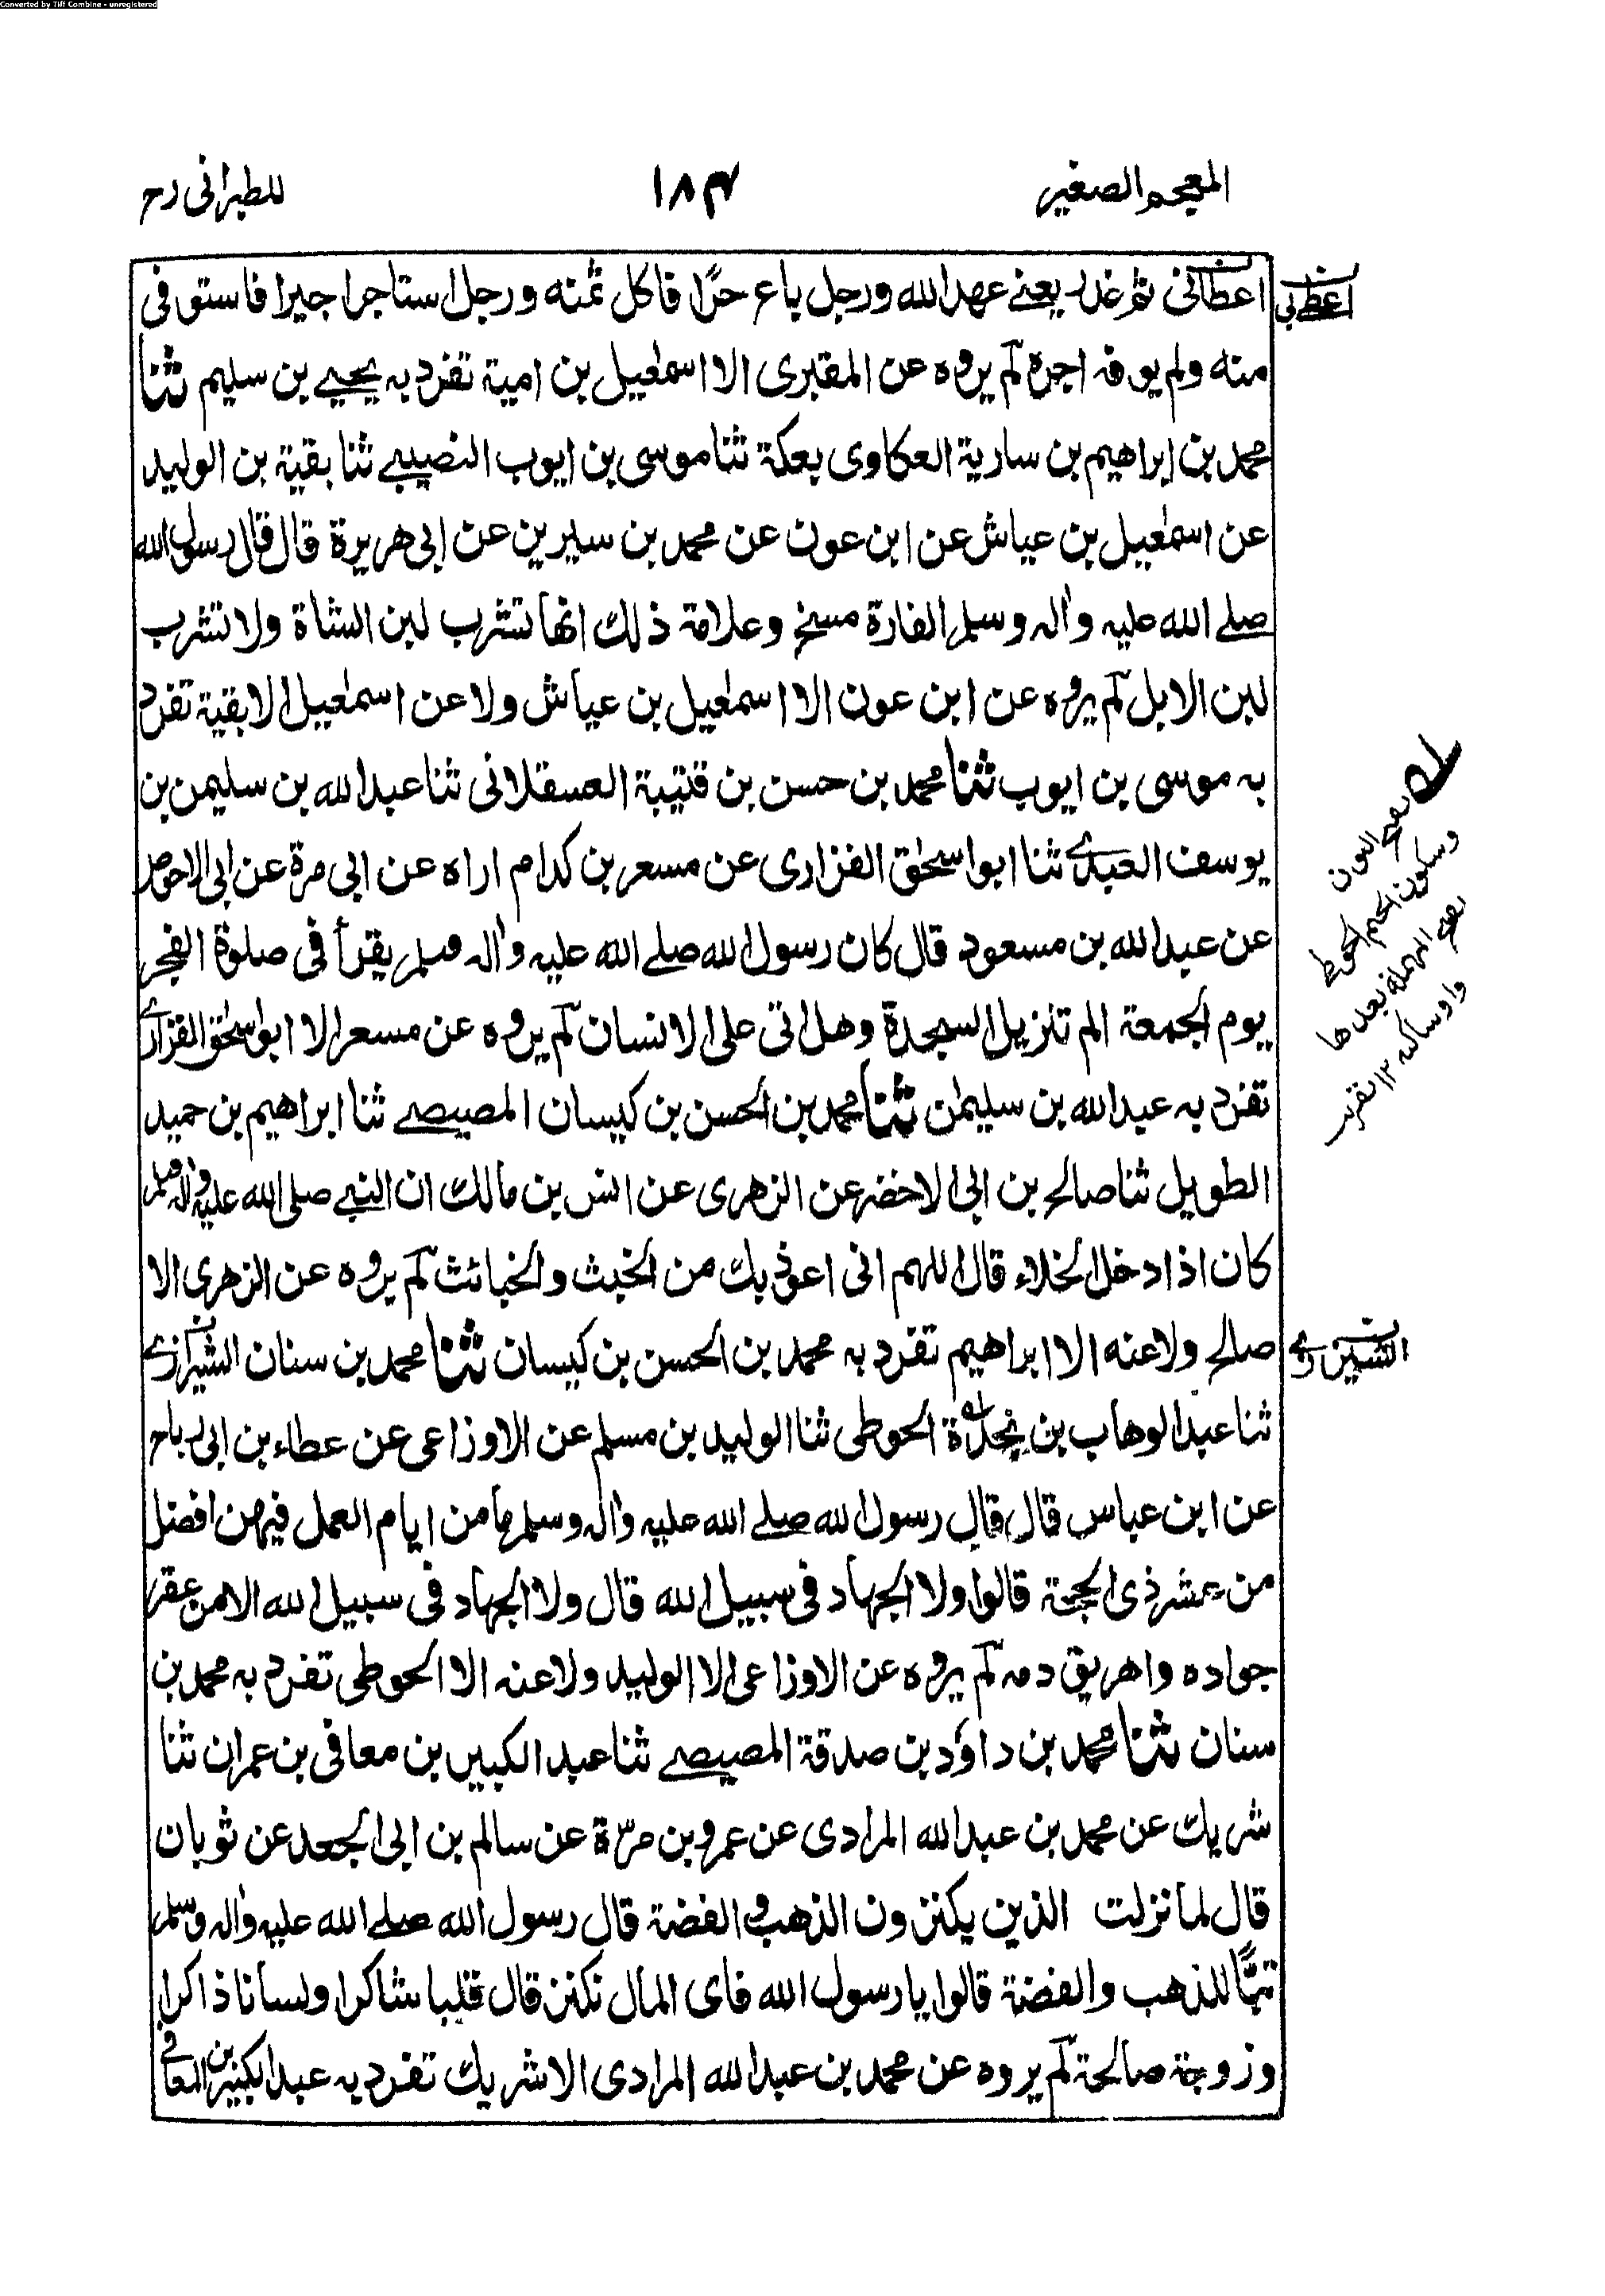 Converted by Tiff Combine - unregistered
المعجم الصغير
١٨٣
للطبرانى رح
اعطانى ثم غدر يعنے عهد الله ورجل باع حرًّا فاكل ثمنه ورجل استاجر اجيرا فاستوفى
منه ولم يوفه اجره لم يروه عن المقبرى الا اسمعيل بن امية تفرد به يحيے بن سليم ثنا
محمد بن ابراهيم بن سارية العكاوى بعكة ثنا موسى بن ايوب النصيبے ثنا بقية بن الوليد
عن اسمعيل بن عياش عن ابن عون عن محمد بن سيرين عن ابى هريرة قال قال رسول الله
صلے الله عليه واٰله وسلم الفارة مسخ وعلامة ذلك انها تشرب لبن الشاة ولا تشرب
لبن الابل لم يروه عن ابن عون الا اسمٰعيل بن عياش ولا عن اسمٰعيل الا بقية تفرد
به موسى بن ايوب ثنا محمد بن حسن بن قتيبة العسقلانى ثنا عبد الله بن سليمن بن
يوسف العبدے ثنا ابو اسحٰق الفزارى عن مسعر بن كدام اراه عن ابى مرة عن ابى الاحوص
عن عبد الله بن مسعود قال كان رسول الله صلے الله عليه واٰله وسلم يقرأ فى صلوة الفجر
يوم الجمعة الم تنزيل السجدة وهل اتى على الانسان لم يروه عن مسعر الا ابو اسحٰق الفزارے
تفرد به عبد الله بن سليمٰن ثنا محمد بن الحسن بن كيسان المصيصے ثنا ابراهيم بن حميد
الطويل ثنا صالح بن ابى الاخضر عن الزهرى عن انس بن مالك ان النبے صلى الله عليه واٰله وسلم
كان اذا دخل الخلاء قال اللهم انى اعوذ بك من الخبث والخبائث لم يروه عن الزهرى الا
صالح ولا عنه الا ابراهيم تفرد به محمد بن الحسن بن كيسان ثنا محمد بن سنان الشيرازے
ثنا عبد الوهاب بن نجدة الحوطى ثنا الوليد بن مسلم عن الاوزاعى عن عطاء بن ابى رباح
عن ابن عباس قال قال رسول الله صلے الله عليه واٰله وسلم ما من ايام العمل فيهن افضل
من عشر ذى الحجة قالوا ولا الجهاد فى سبيل الله قال ولا الجهاد فى سبيل الله الا من عقر
جواده واهريق دمه لم يروه عن الاوزاعى الا الوليد ولا عنه الا الحوطى تفرد به محمد بن
سنان ثنا محمد بن داؤد بن صدقة المصيصے ثنا عبد الكبير بن معافى بن عمران ثنا
شريك عن محمد بن عبد الله المرادى عن عمرو بن مرّة عن سالم بن ابى الجعد عن ثوبان
قال لما نزلت الذين يكنزون الذهب والفضة قال رسول الله صلے الله عليه واٰله وسلم
تبًّا للذهب والفضة قالوا يا رسول الله فاى المال نكنز قال قلبا شاكرا ولسانا ذاكرا
وزوجة صالحة لم يروه عن محمد بن عبد الله المرادى الا شريك تفرد به عبد الكبير بن المعافے
اعطى بى
بفتح النون
وسكون الجيم الحوطے
بفتح المهملة بعدها
واو ساكنة ١٢ تقريب